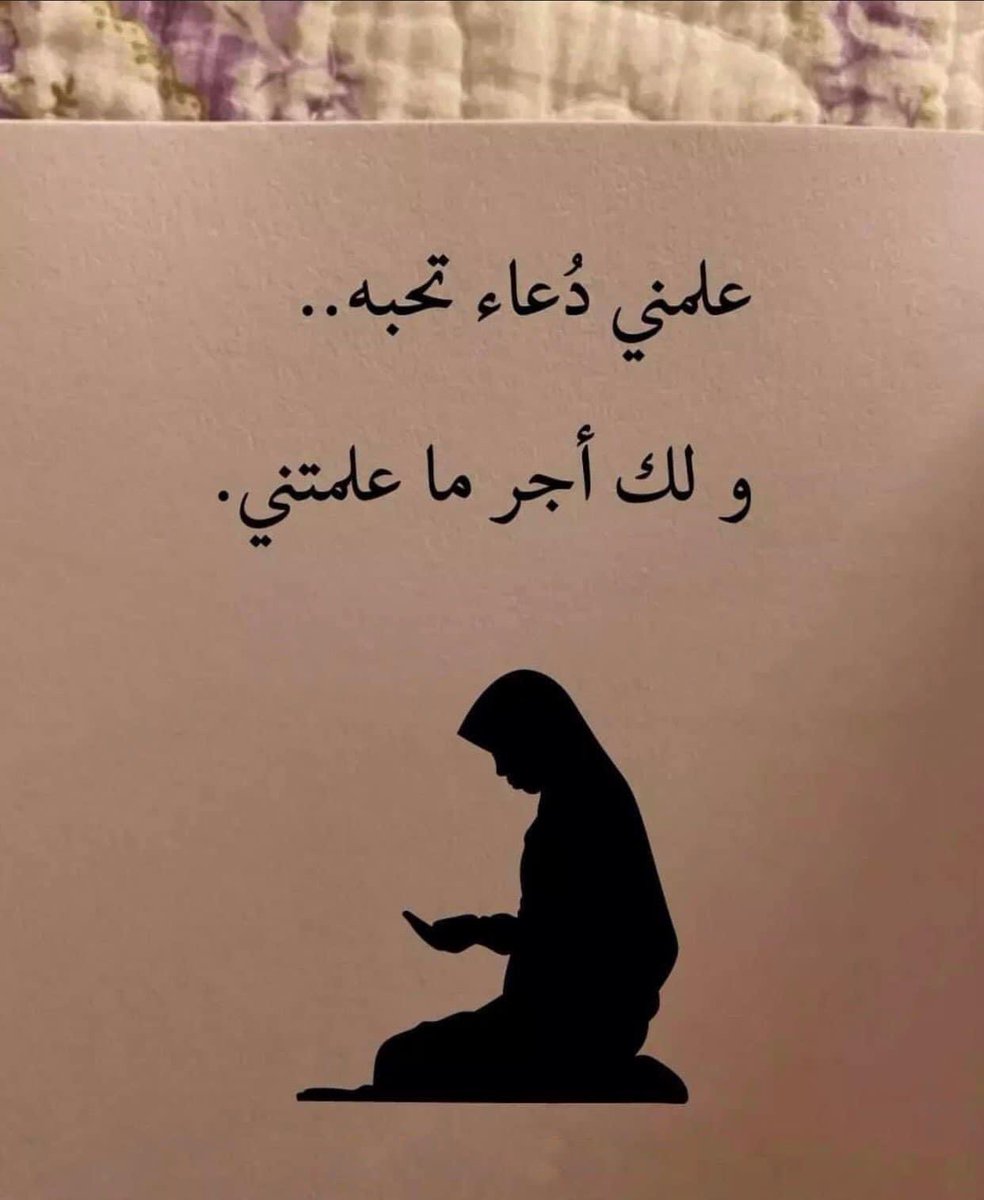 علمني دُعاء تحبه..
و لك أجر ما علمتني.